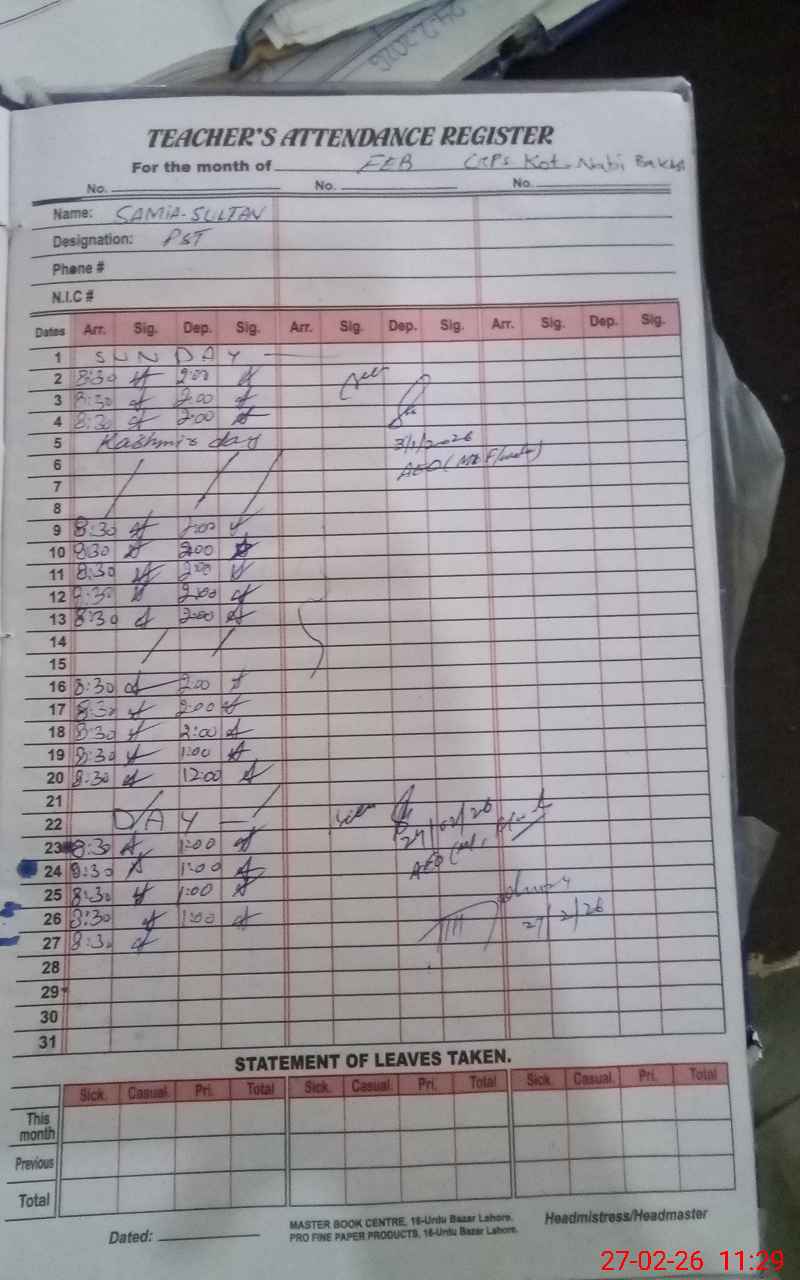 TEACHER'S ATTENDANCE REGISTER
For the month of FEB Kot. Nabi
No. No. No.
Name: SAMIA-SULTAN
Designation: PST
Phone #
N.I.C #
Dates Arr. Sig. Dep. Sig. Arr. Sig. Dep. Sig. Arr. Sig. Dep. Sig.
1 SUNDAY
2 8:30 2:00
3 8:30 2:00
4 8:30 2:00
5 Kashmir day
6 AEO
7
8
9 8:30 2:00
10 8:30 2:00
11 8:30 2:00
12 8:30 2:00
13 8:30 2:00
14
15
16 8:30 2:00
17 8:30 2:00
18 8:30 2:00
19 8:30 1:00
20 8:30 12:00
21
22 DAY
23 8:30 1:00
24 8:30 1:00 AEO
25 8:30 1:00
26 8:30 1:00 27/2/26
27 8:30
28
29
30
31
STATEMENT OF LEAVES TAKEN.
Sick. Casual. Pri. Total Sick. Casual. Pri. Total Sick. Casual. Pri. Total
This month
Previous
Total
Dated: MASTER BOOK CENTRE, 16-Urdu Bazar Lahore. Headmistress/Headmaster
PRO FINE PAPER PRODUCTS, 16-Urdu Bazar Lahore.
27-02-26 11:29